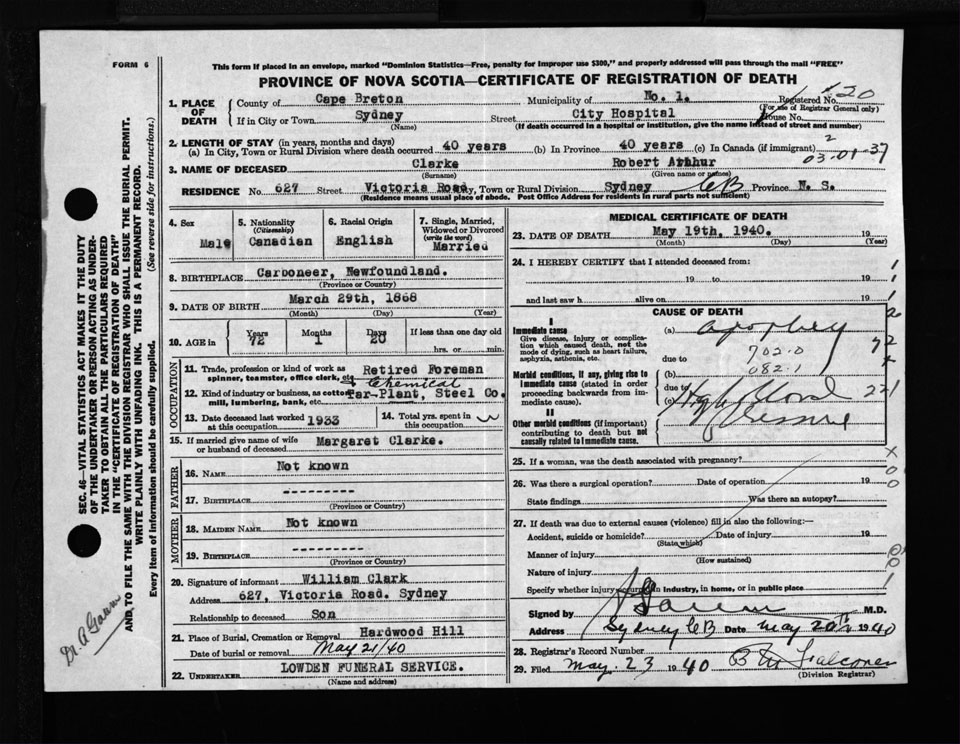 FORM 6
This form if mailed in an envelope, marked "Dominion Statistics—Free, penalty for improper use $300," and properly addressed will pass through the mail "FREE"
PROVINCE OF NOVA SCOTIA—CERTIFICATE OF REGISTRATION OF DEATH
1. PLACE OF DEATH
County of Cape Breton Municipality of No. 1. Registered No. 20
(For use of Registrar General only)
If in City or Town Sydney Street City Hospital House No.
(Name) (If death occurred in a hospital or institution, give the name instead of street and number)
2. LENGTH OF STAY (in years, months and days)
(a) In City, Town or Rural Division where death occurred 40 years (b) In Province 40 years (c) In Canada (if immigrant) 2
03-01-37
3. NAME OF DECEASED Clarke Robert Arthur
(Surname) (Given name or names)
RESIDENCE No. 627 Street Victoria Road City, Town or Rural Division Sydney CB Province N. S.
(Residence means usual place of abode. Post Office Address for residents in rural parts not sufficient)
4. Sex Male
5. Nationality (Citizenship) Canadian
6. Racial Origin English
7. Single, Married, Widowed or Divorced (write the word) Married
8. BIRTHPLACE Carboneer, Newfoundland.
(Province or Country)
9. DATE OF BIRTH March 29th, 1868
(Month) (Day) (Year)
10. AGE in Years 72 Months 1 Days 20 If less than one day old
hrs. or min.
OCCUPATION
11. Trade, profession or kind of work as spinner, teamster, office clerk, etc. Retired Foreman
12. Kind of industry or business, as cotton mill, lumbering, bank, etc. Tar-Plant, & Chemical Steel Co.
13. Date deceased last worked at this occupation 1933
14. Total yrs. spent in this occupation
15. If married give name of wife or husband of deceased Margaret Clarke.
FATHER
16. NAME Not known
17. BIRTHPLACE ----------
(Province or Country)
MOTHER
18. MAIDEN NAME Not known
19. BIRTHPLACE ----------
(Province or Country)
20. Signature of informant William Clark
Address 627, Victoria Road. Sydney
Relationship to deceased Son
21. Place of Burial, Cremation or Removal Hardwood Hill
Date of burial or removal May 21/40
22. UNDERTAKER LOWDEN FUNERAL SERVICE.
(Name and address)
MEDICAL CERTIFICATE OF DEATH
23. DATE OF DEATH May 19th, 1940. 19
(Month) (Day) (Year)
24. I HEREBY CERTIFY that I attended deceased from:
19 to 19
and last saw h alive on 19
CAUSE OF DEATH
I
Immediate cause
Give disease, injury or complication which caused death, not the mode of dying, such as heart failure, asphyxia, asthenia, etc.
(a) apoplexy
due to 702.0
082.1
Morbid conditions, if any, giving rise to immediate cause (stated in order proceeding backwards from immediate cause).
(b)
due to
(c) High blood pressure
II
Other morbid conditions (if important) contributing to death but not causally related to immediate cause.
25. If a woman, was the death associated with pregnancy?
26. Was there a surgical operation? Date of operation 19
State findings Was there an autopsy?
27. If death was due to external causes (violence) fill in also the following:—
Accident, suicide or homicide? Date of injury 19
(State which)
Manner of injury
(How sustained)
Nature of injury
Specify whether injury occurred in industry, in home, or in public place
Signed by M.D.
Address Sydney CB Date May 20th 1940
28. Registrar's Record Number
29. Filed May. 23 1940
(Division Registrar)
SEC. 46—VITAL STATISTICS ACT MAKES IT THE DUTY
OF THE UNDERTAKER OR PERSON ACTING AS UNDERTAKER TO OBTAIN ALL THE PARTICULARS REQUIRED
IN THE "CERTIFICATE OF REGISTRATION OF DEATH"
AND TO FILE THE SAME WITH THE DIVISION REGISTRAR WHO SHALL ISSUE THE BURIAL PERMIT.
WRITE PLAINLY WITH UNFADING INK. THIS IS A PERMANENT RECORD.
Every item of information should be carefully supplied. (See reverse side for instructions.)